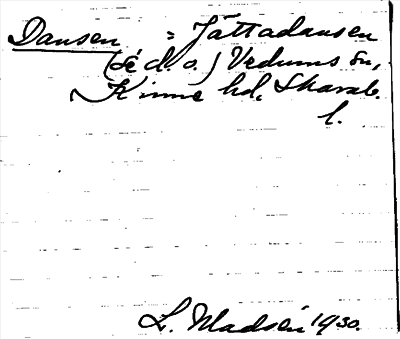 Dansen = Jättadansen
(se d. o.) Vedums sn,
Kinne hd, Skarab.
l.
L. Madsén 1930.